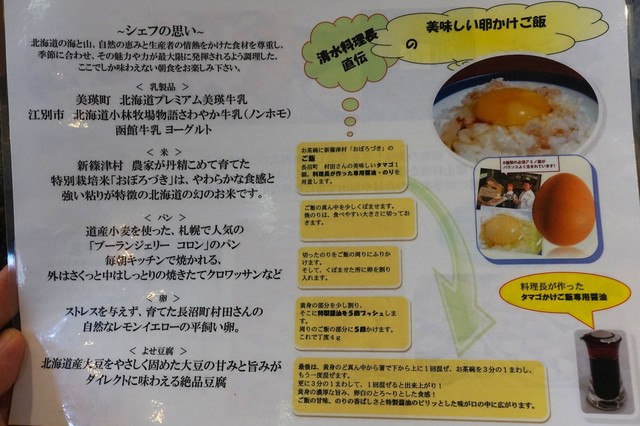 ~シェフの思い~
北海道の海と山、自然の恵みと生産者の情熱をかけた食材を尊重し、
季節に合わせ、その魅力や力が最大限に発揮されるよう調理した、
ここでしか味わえない朝食をお楽しみ下さい。
< 乳製品 >
美瑛町 北海道プレミアム美瑛牛乳
江別市 北海道小林牧場物語さわやか牛乳(ノンホモ)
函館牛乳 ヨーグルト
< 米 >
新篠津村 農家が丹精こめて育てた
特別栽培米「おぼろづき」は、やわらかな食感と
強い粘りが特徴の北海道の幻のお米です。
< パン >
道産小麦を使った、札幌で人気の
「ブーランジェリー コロン」のパン
毎朝キッチンで焼かれる、
外はさくっと中はしっとりの焼きたてクロワッサンなど
< 卵 >
ストレスを与えず、育てた長沼町村田さんの
自然なレモンイエローの平飼い卵。
< よせ豆腐 >
北海道産大豆をやさしく固めた大豆の甘みと旨みが
ダイレクトに味わえる絶品豆腐
清水料理長
直伝
の
美味しい卵かけご飯
お茶碗に新篠津村「おぼろづき」の
ご飯
長沼町 村田さんの美味しいタマゴ1
個、料理長が作った専用醤油・のり
を用意します。
ご飯の真ん中を少しくぼませます。
焼のりは、食べやすい大きさに切ってお
きます。
切ったのりをご飯の周りにふりか
けます。
そして、くぼませた所に卵を割り
入れます。
黄身の部分を少し割り、
そこに特製醤油を5回プッシュしま
す。
周りのご飯の部分に5回かけます。
これで丁度4g
最後は、黄身のど真ん中から箸で下から上に1回混ぜ、お茶碗を3分の1まわし、
もう一度混ぜます。
更に3分の1まわして、1回混ぜると出来上がり!
黄身の濃厚な旨み、卵白のとろ~りとした食感!
ご飯の甘味、のりの香ばしさと特製醤油のピリッとした味が口の中に広がります。
料理長が作った
タマゴかけご飯専用醤油